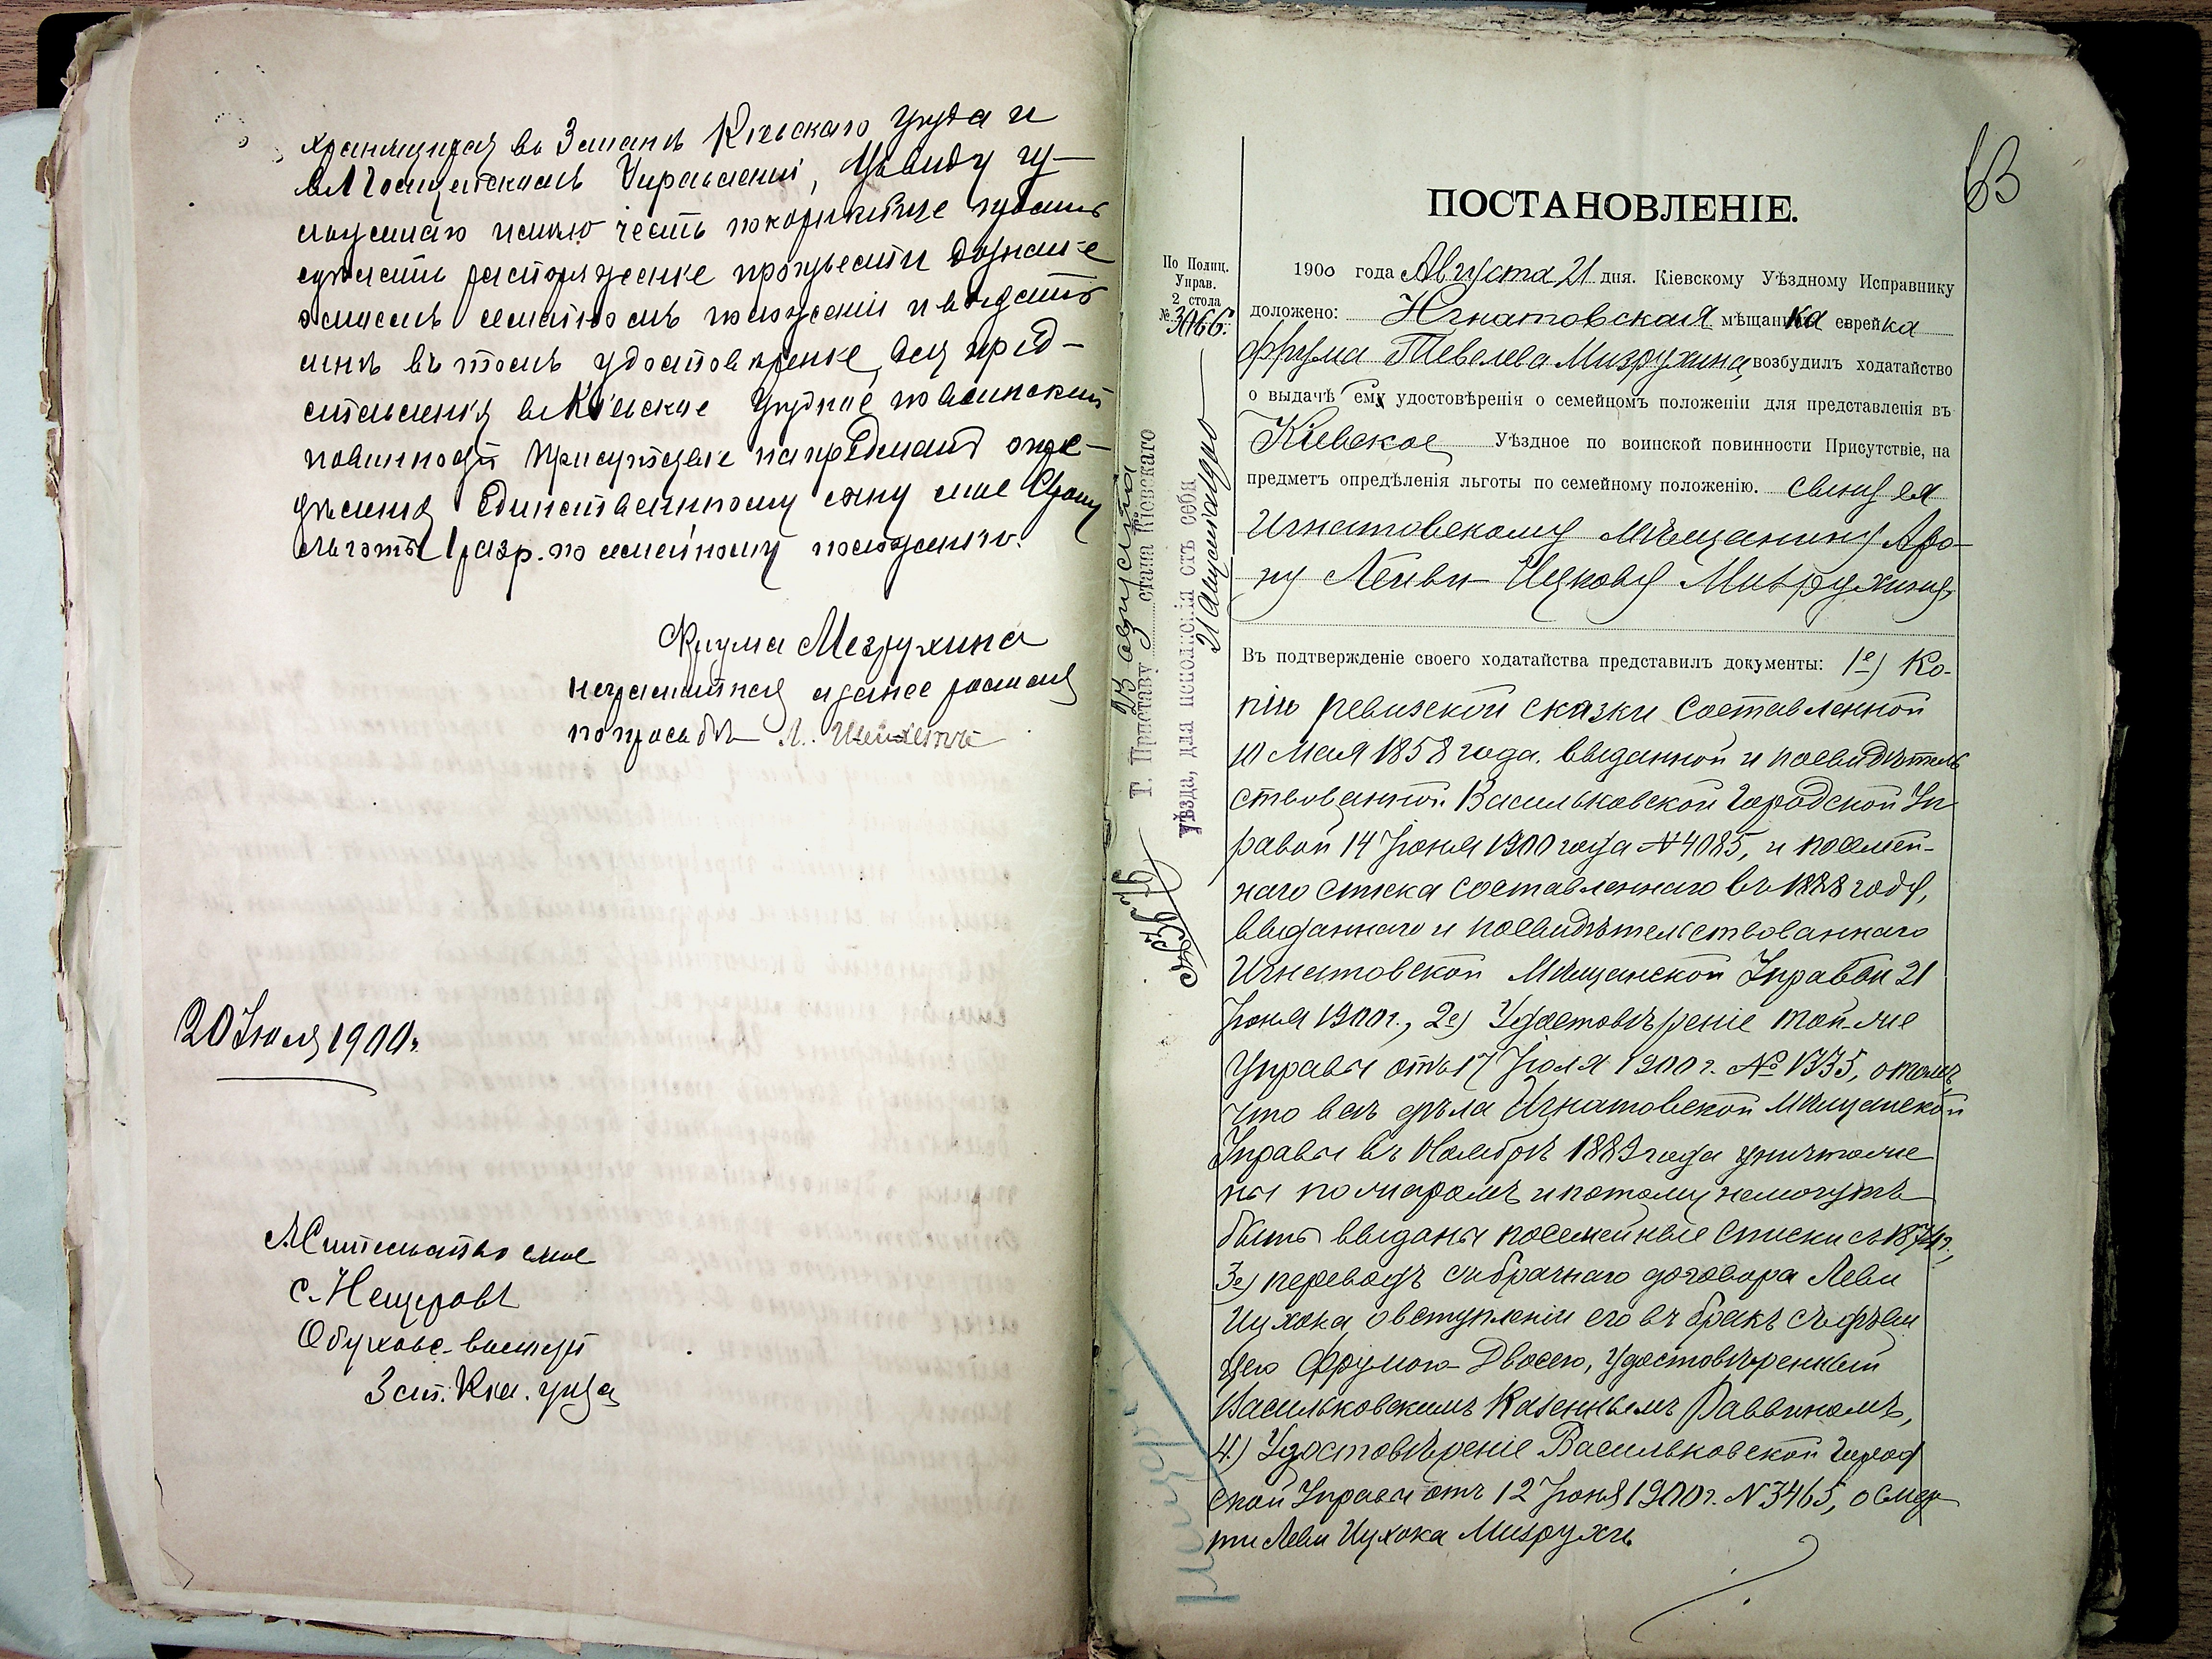 хранящихся въ 3 станѣ Кіевскаго уѣзда и
въ Мѣщанскомъ Управленіи, Ввиду
имѣю честь покорнѣйше просить
сдѣлать распоряженіе произвести дознаніе
о моемъ семейномъ положеніи и выдать
мнѣ въ томъ удостовѣреніе, для пред-
ставленія въ Кіевское Уѣздное по воинской
повинности Присутствіе на предметъ опре-
дѣленія единственному сыну моему Арону
льготы 1 разр. по семейному положенію.
Фрума Мезрухина
неграмотная а за нее росписался
по просьбѣ Л.
20 Іюля 1900 г.
Жительство мое
с. Нещеровъ
Обуховс. волости
3 ст. Кіев. уѣзда
63
ПОСТАНОВЛЕНІЕ.
По Полиц.
Управ.
2 стола
№ 3066.
1900 года Августа 21 дня. Кіевскому Уѣздному Исправнику
доложено: Игнатовская мѣщанка еврейка
Фрума Тевелева Мизрухина, возбудилъ ходатайство
о выдачѣ ему удостовѣренія о семейномъ положеніи для представленія въ
Кіевское Уѣздное по воинской повинности Присутствіе, на
предметъ опредѣленія льготы по семейному положенію. сыну ея
Игнатовскому мѣщанину Аро-
ну Лейви-Ицкову Мизрухину.
Въ подтвержденіе своего ходатайства представилъ документы: 1е) Ко-
пію ревизской сказки составленной
10 Мая 1858 года. выданной и посвидѣтель
ствованной Васильковской Городской Уп
равой 14 Іюня 1900 года № 4085, и посемей-
наго списка составленнаго въ 1888 году,
выданнаго и посвидѣтельствованнаго
Игнатовской Мѣщанской Управой 21
Іюня 1900 г., 2е) Удостовѣреніе той-же
Управы отъ 17 Іюля 1900 г. № 1335, о томъ
что всѣ дѣла Игнатовской Мѣщанской
Управы въ Ноябрѣ 1889 года уничтоже
ны пожаромъ и потому немогутъ
быть выданы посемейные списки съ 1874 г.,
3е) переводъ съ брачнаго договора Леви
Ицхока о вступленіи его въ бракъ съ дѣви
цею Фрумою-Двосею, удостовѣренный
Васильковскимъ Казеннымъ Раввиномъ,
4.) Удостовѣреніе Васильковской Город
ской Управы отъ 12 Іюня 1900 г. № 3465, о смер
ти Леви Ицхока Мизрухъ
23 августа
Т. Приставу 3 стана Кіевскаго
уѣзда, для исполненія отъ себя
21 Августа